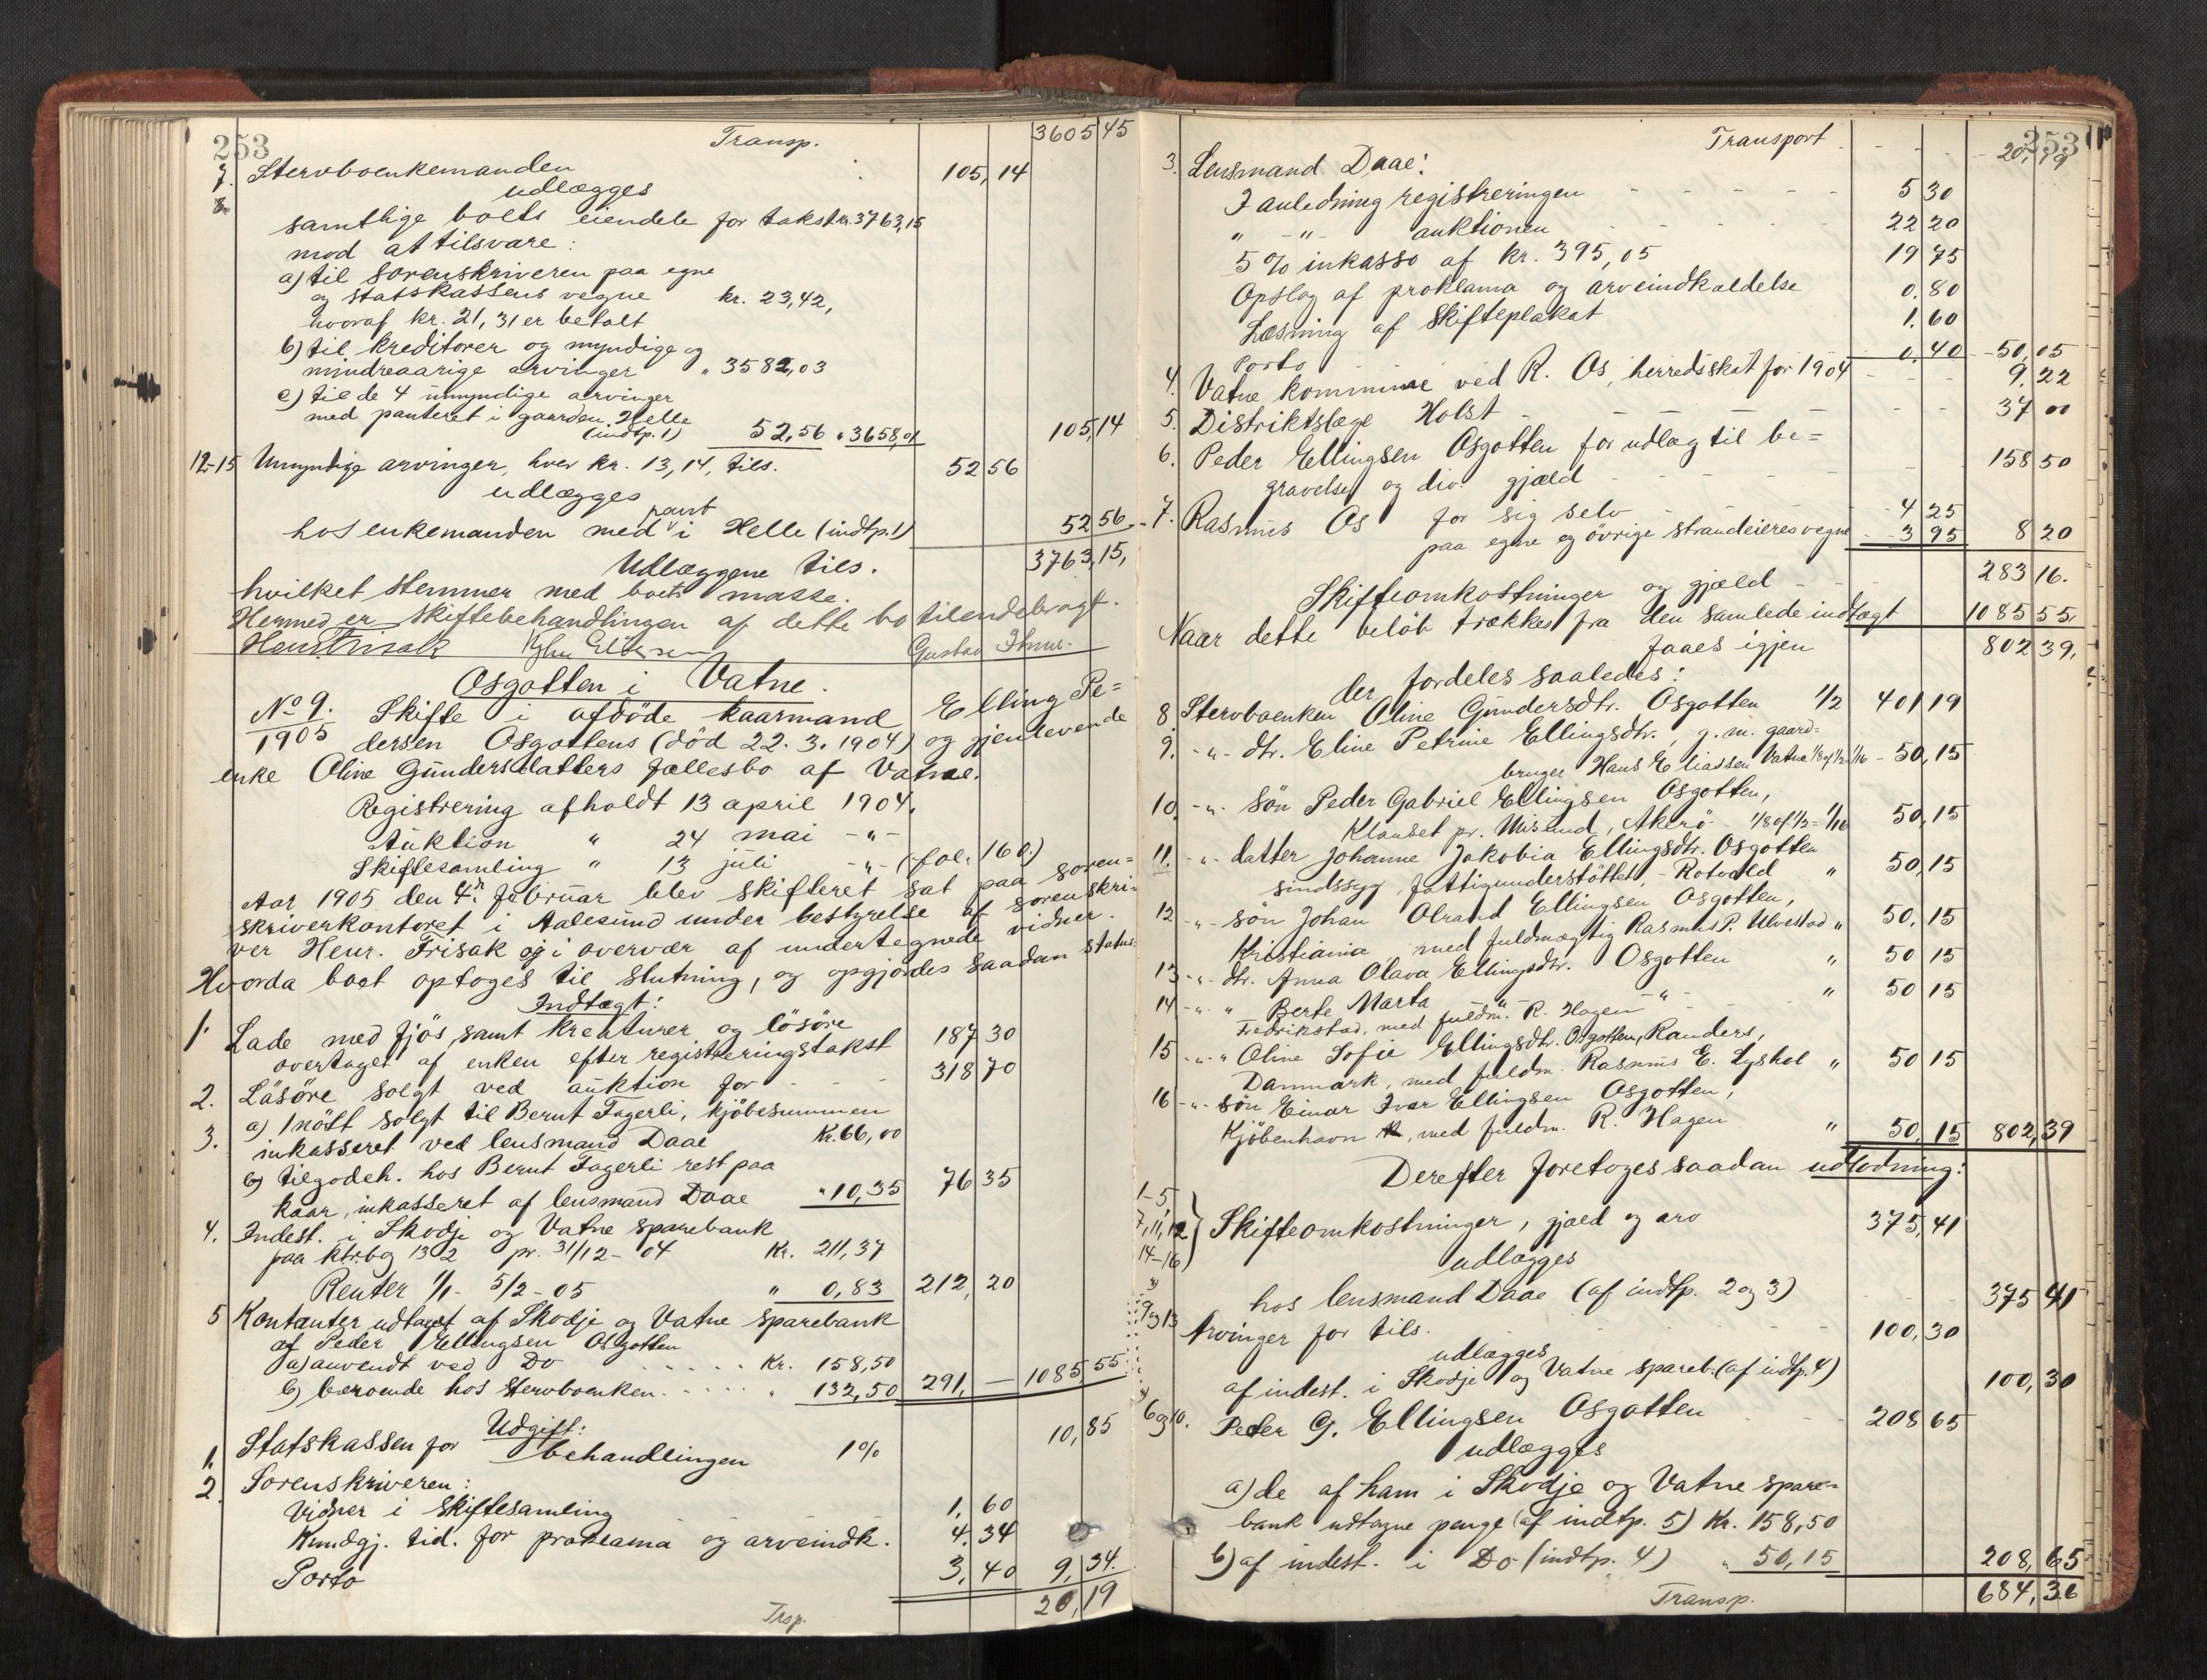 253
Transp. 3605 45
7. Stervboenkemanden 105,14
udlægges
8. samtlige boets eiendele for takst kr. 3763,15
mod at tilsvare:
a) til sorenskriveren paa egne
og statskassens vegne kr. 23,42,
hvoraf kr. 21,31 er betalt
b) til kreditorer og myndige og
mindreaarige arvinger " 3582,03
c) til de 4 umyndige arvinger
med panteret i gaarden Helle
(indtp. 1) 52,56 " 3658,01 105,14
12-15 Umyndige arvinger, hver kr. 13,14, tils. 52 56
udlægges
hos enkemanden med pant i Helle (indtp. 1) 52 56
Udlæggene tils. 3763,15,
hvilket stemmer med boets masse.
Hermed er skiftebehandlingen af dette bo tilendebragt.
Henr Frisak
Osgotten i Vatne.
No 9. Skifte i afdöde kaarmand Elling Pe=
1905 dersen Osgottens (död 22.3.1904) og gjenlevende
enke Oline Gundersdatters fællesbo af Vatne.
Registrering afholdt 13 april 1904.
Auktion " 24 mai -"-
Skiftesamling " 13 juli -"- (fol. 160)
Aar 1905 den 4. februar blev skifteret sat paa soren=
skriverkontoret i Aalesund under bestyrelse af sorenskri-
ver Henr. Frisak og i overvær af undertegnede vidner.
Hvorda boet optoges til slutning, og opgjordes saadan status:
Indtægt:
1. Lade med fjös, samt kreaturer og lösöre
overtaget af enken efter registreringstakst 187 30
2. Lösöre solgt ved auktion for - - - 318 70
3. a) 1 nöst solgt til Bernt Fagerli, kjöbesummen
inkasseret ved lensmand Daae Kr. 66,00
b) tilgodeh. hos Bernt Fagerli rest paa
kaar, inkasseret af lensmand Daae " 10,35 76 35
4. Indest. i Skodje og Vatne sparebank
paa ktrbog 1302 pr. 31/12-04 Kr. 211,37
Renter 1/1 - 5/2-05 " 0,83 212,20
5 Kontanter udtaget af Skodje og Vatne sparebank
af Peder Ellingsen Osgotten
a) anvendt ved Do . . . . . Kr. 158,50
b) beroende hos stervboenken . . . . . " 132,50 291, — 1085,55
Udgift:
1. Statskassen for behandlingen 1% 10,85
2. Sorenskriveren:
Vidner i skiftesamling 1,60
Kundgj. tid. for proklama og arveindk. 4,34
Porto 3,40 9,34.
Trsp. 20,19
253
Transport - - - 20,19
3. Lensmand Daae:
I anledning registreringen - - - - - 5 30
" -"- auktionen - - - - - 22 20
5% inkasso af kr. 395,05 19 75
Opslag af proklama og arveindkaldelse 0.80
Læsning af skifteplakat 1.60
Porto 0.40 50,05
4. Vatne kommune ved R. Os, herredsskat for 1904 - - - 9,22
5. Distriktslæge Holst - - - - - 37 00
6. Peder Ellingsen Osgotten for udlæg til be=
gravelse og div. gjæld - - - 158 50
7. Rasmus Os for sig selv - - - 4 25
paa egne og övrige strandeieres vegne - 3 95 8 20
Skifteomkostninger og gjæld - - - 283 16.
Naar dette belöb trækkes fra den samlede indtægt 1085 55.
faaes igjen 802 39.
der fordeles saaledes:
8 Stervboenken Oline Gundersdtr. Osgotten 1/2 401 19
9. -"- dtr. Eline Petrine Ellingsdtr., g. m. gaard=
bruger Hans Eliassen Vatne 1/8 af 1/2 = 1/16 50,15
10. -"- sön Peder Gabriel Ellingsen Osgotten,
Klauset pr. Misund, Akerö 1/8 af 1/2 = 1/16 50,15
11. -"- datter Johanne Jakobia Ellingsdtr. Osgotten
sindssyg, fattigunderstöttet, - Rotvold " 50,15
12 -"- sön Johan Olrand Ellingsen Osgotten,
Kristiania med fuldmægtig Rasmus P. Ulvestad " 50,15
13 -"- dtr. Anna Olava Ellingsdtr. Osgotten " 50 15
14 -"- " Berte Marta -"- -"- " 50 15
Fredrikstad, med fuldm. R. Hagen
15 -"- " Oline Sofie Ellingsdtr. Osgotten, Randers,
Danmark, med fuldm. Rasmus E. Lyshol " 50 15
16 -"- sön Einar Ivar Ellingsen Osgotten,
Kjöbenhavn, med fuldm. R. Hagen " 50,15 802,39
Derefter foretoges saadan udlodning:
1-5,
7, 11, 12
14-16
Skifteomkostninger, gjæld og arv 375,41
udlægges
hos lensmand Daae (af indtp. 2 og 3) - - - 375 41
9 og 13 Arvinger for tils. - - - - - 100,30
udlægges
af indest. i Skodje og Vatne spareb. (af indtp. 4) 100,30
6 og 10. Peder G. Ellingsen Osgotten 208 65
udlægges
a) de af ham i Skodje og Vatne spare=
bank udtagne penge (af indtp. 5) Kr. 158,50
b) af indest. i Do (indtp. 4) " 50,15 208,65
Transp. 684,36